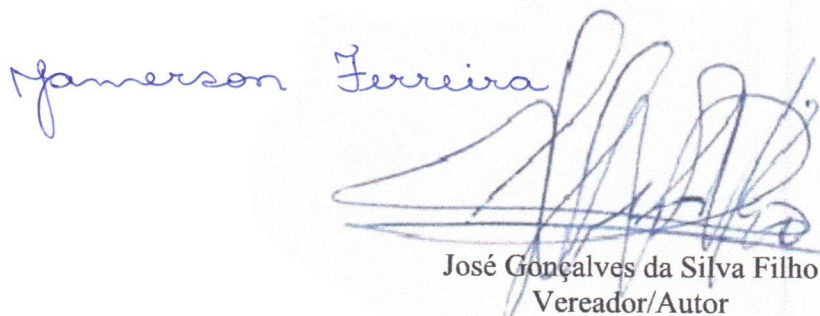 Jamerson Ferreira
José Gonçalves da Silva Filho
Vereador/Autor